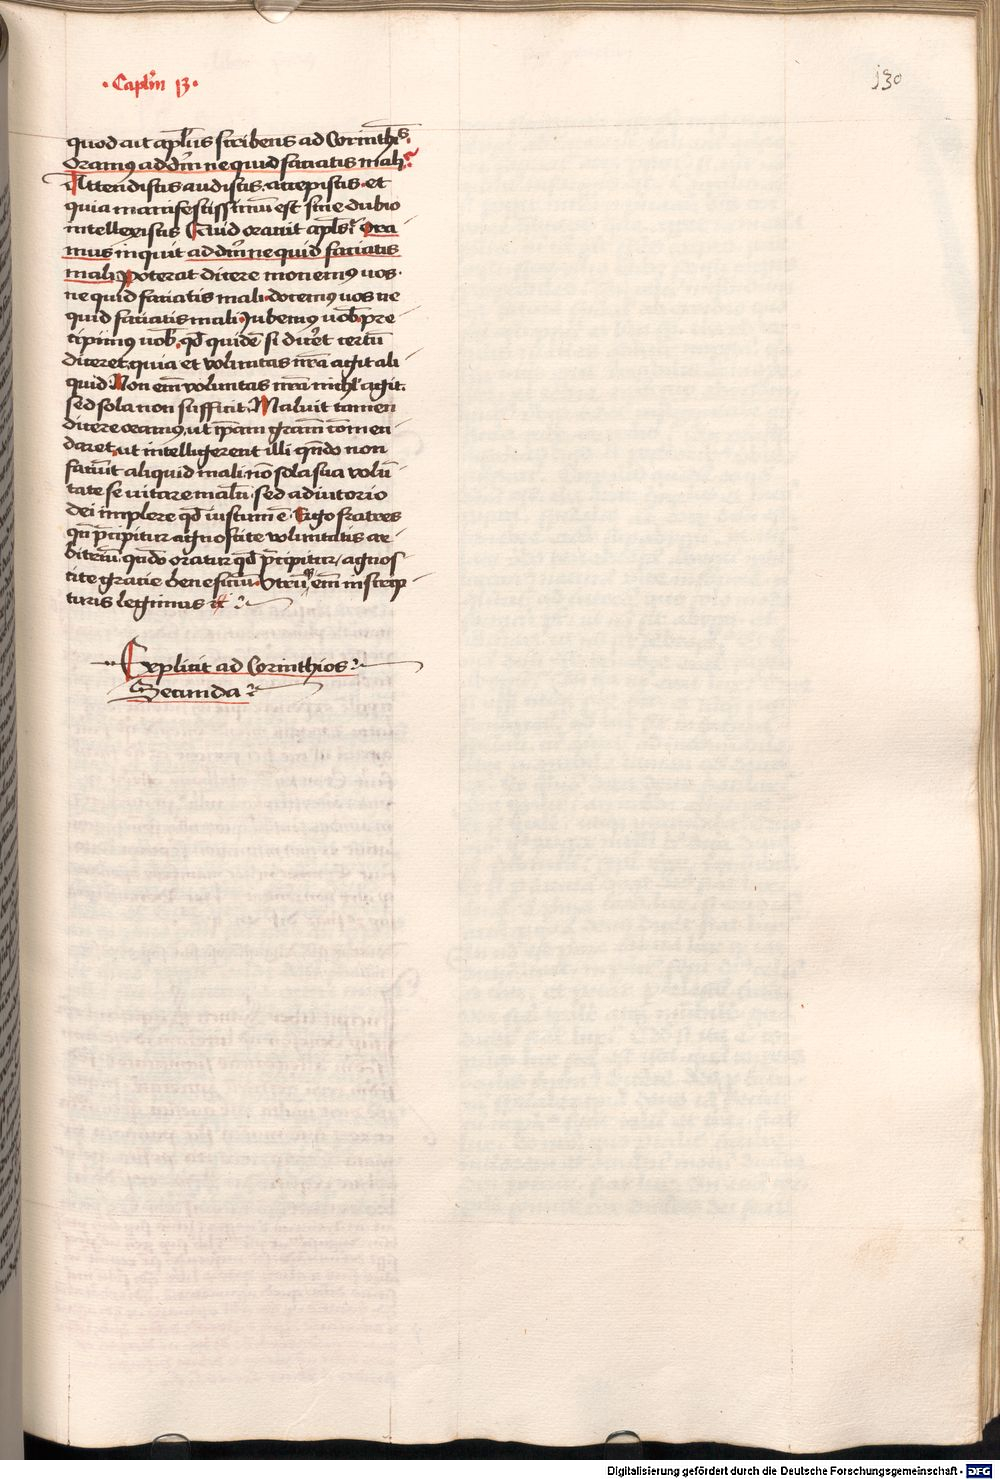 · Caplm 13 ·
130
quod ait apl'us scribens ad Corinthis.
Oramus ad dm ne quid faciatis mali
Attendistis audistis. accepistis. et
quia manifestissimu est sine dubio
intellexistis Quid orauit apls. Ora
mus inquit ad dm ne quid faciatis
mali Poterat dicere monemus uos.
ne quid faciatis mali. docemus uos ne
quid faciatis mali. Jubemus uob. pre
cipimus uob. qd quide si dicet certu
diceret. quia et voluntas nra agit ali
quid. Non em voluntas nra nichl agit.
sed sola non sufficit. Maluit tamen
dicere oramus, ut ipam gram commen
daret, ut intelligerent illi qndo non
faciut aliquid mali no sola sua volu
tate se uitare malu. sed adiutorio
dei implere qd iustum e. Ergo fratres
qn pcipitur agnoscite voluntatis ar
bitriu. qndo oratur qd pcipitur, agnos
cite gracie beneficiu. Vtruq em in scrip
turis legimus
Explicit ad Corinthios
Secunda
Digitalisierung gefördert durch die Deutsche Forschungsgemeinschaft - DFG